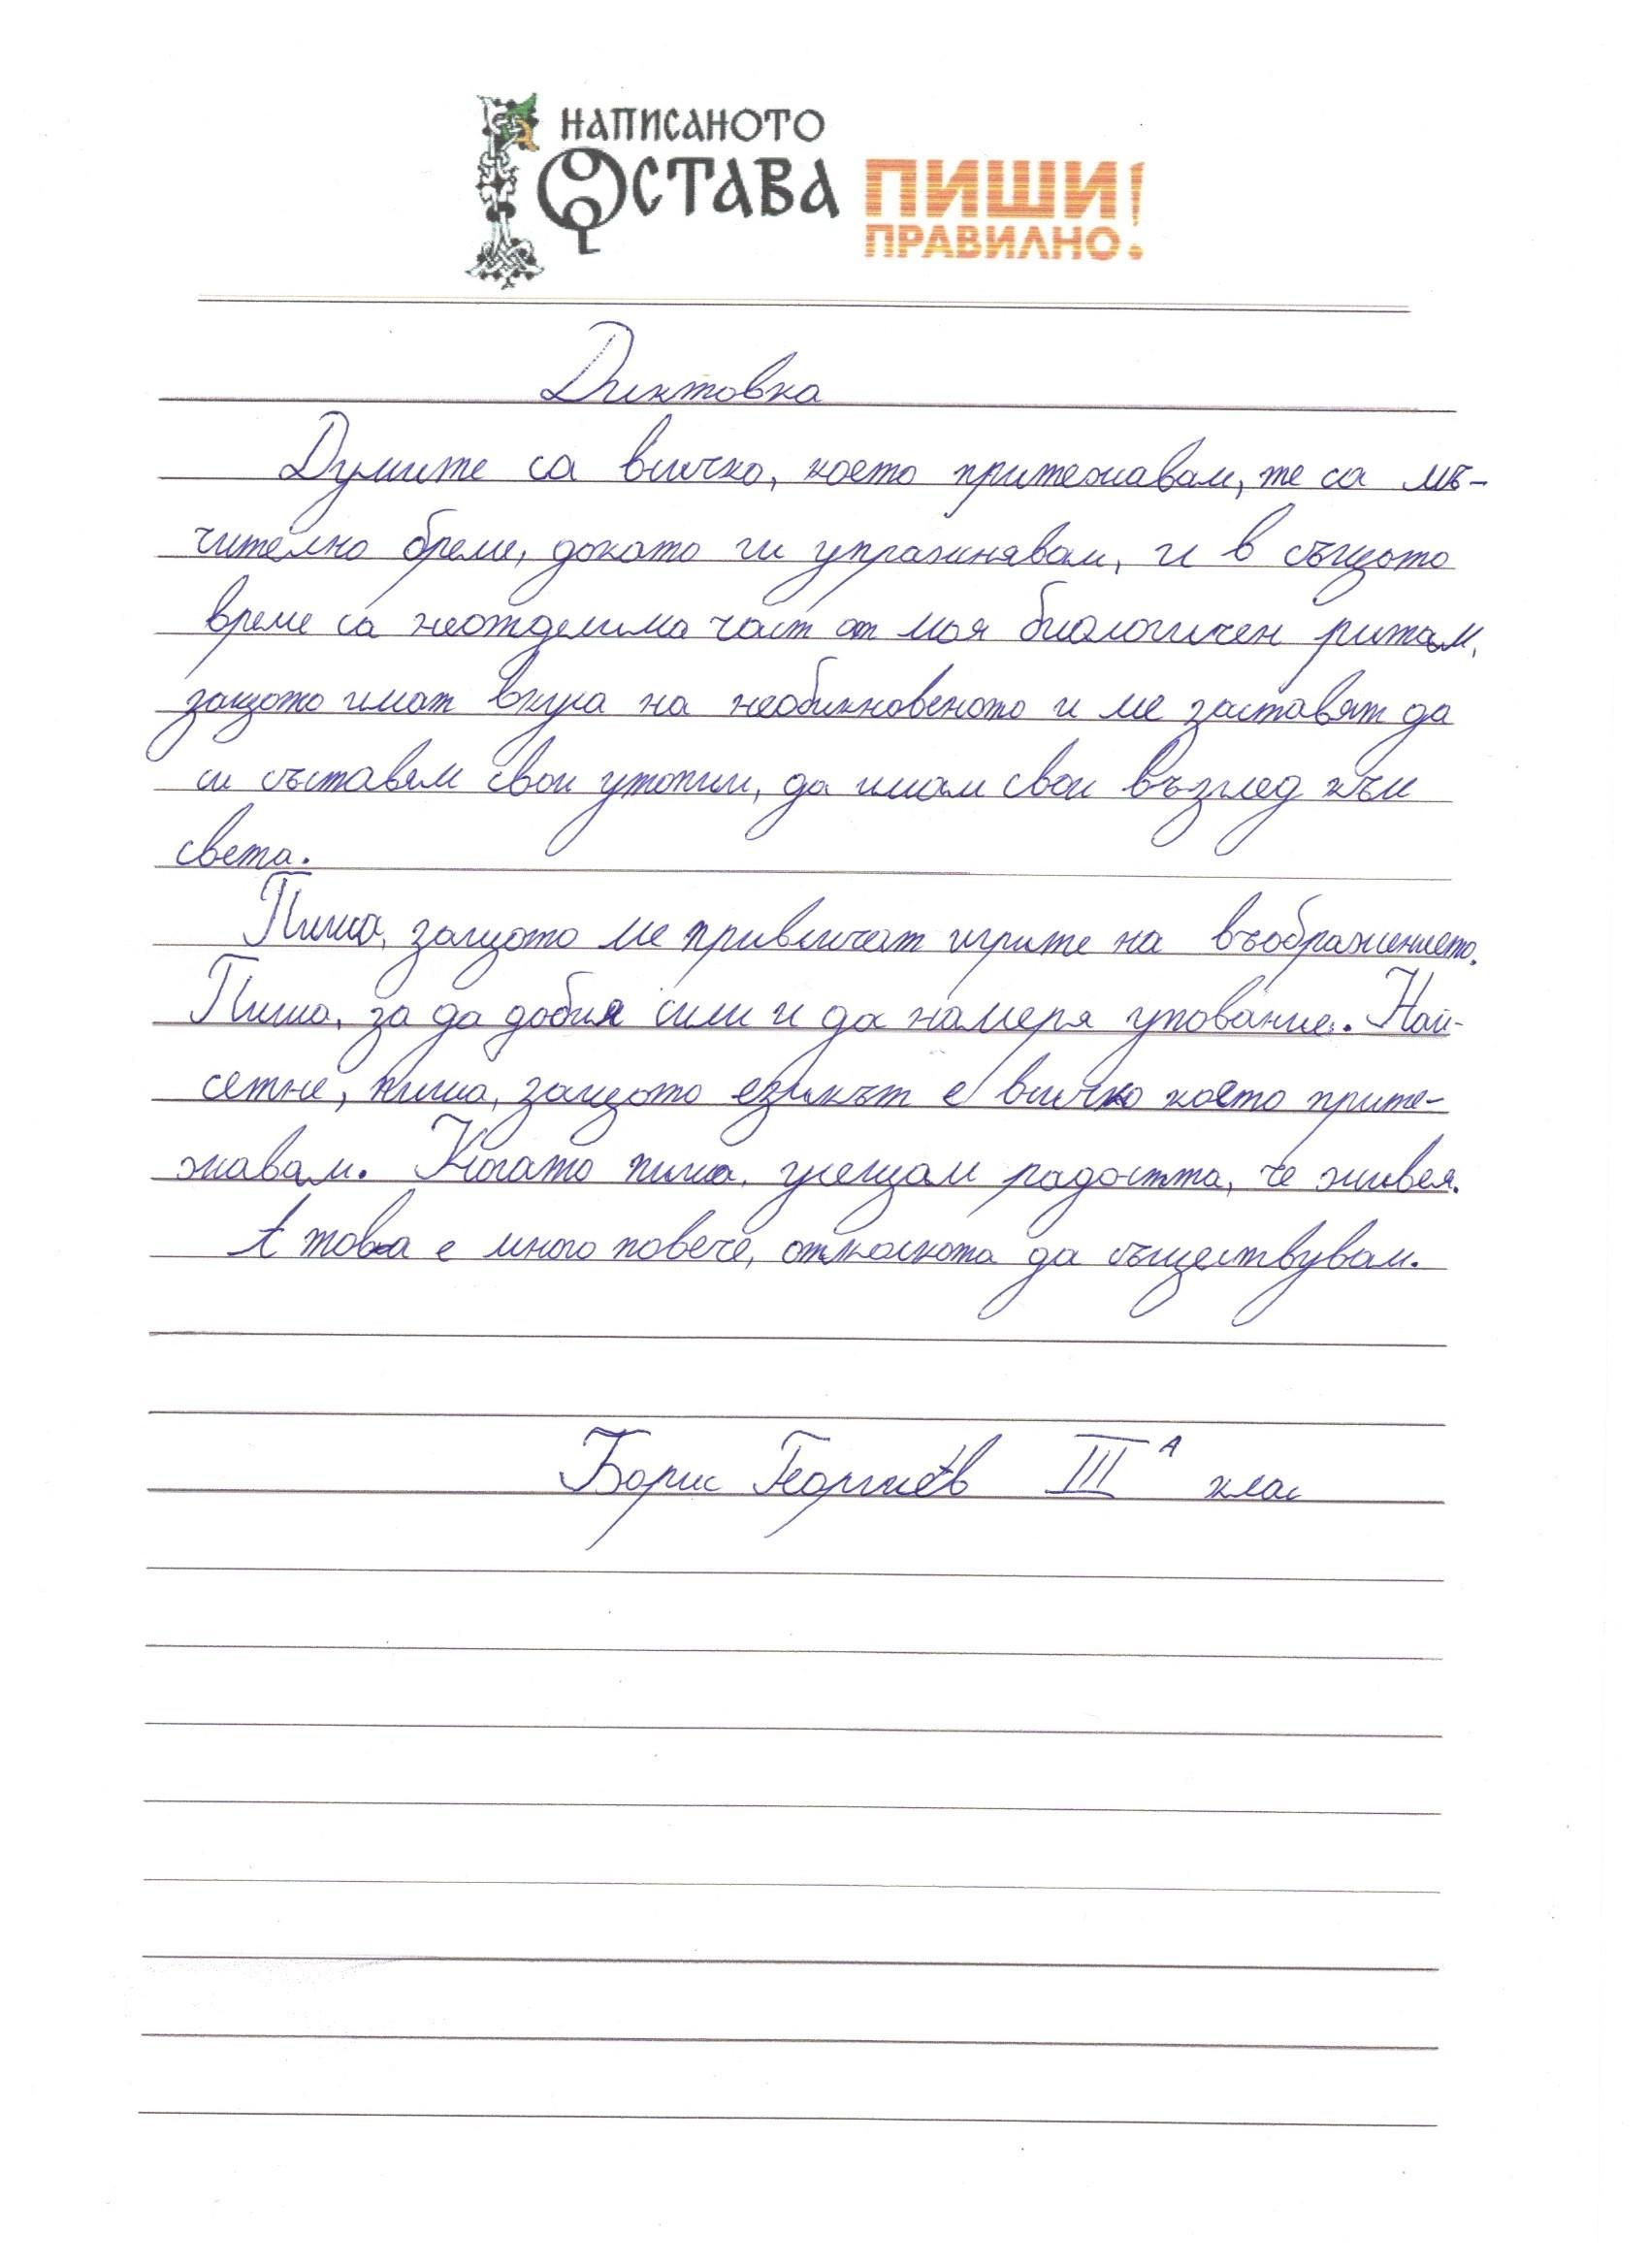 НАПИСАНОТО
ОСТАВА ПИШИ!
ПРАВИЛНО
Диктовка
Думите са всичко, което притежавам, те са мъ-
чително бреме, докато ги упражнявам, и в същото
време са неотделима част от моя биологичен ритъм,
защото имат вкуса на необикновеното и ме заставят да
си съставям свои утопии, да имам свои възглед към
света.
Пиша, защото ме привличат игрите на въображението.
Пиша, за да добия сили и да намеря упование. Най-
сетне, пиша, защото езикът е всичко което прите-
жавам. Когато пиша, усещам радостта, че живея.
А това е много повече, отколкото да съществувам.
Борис Георгиев III А клас